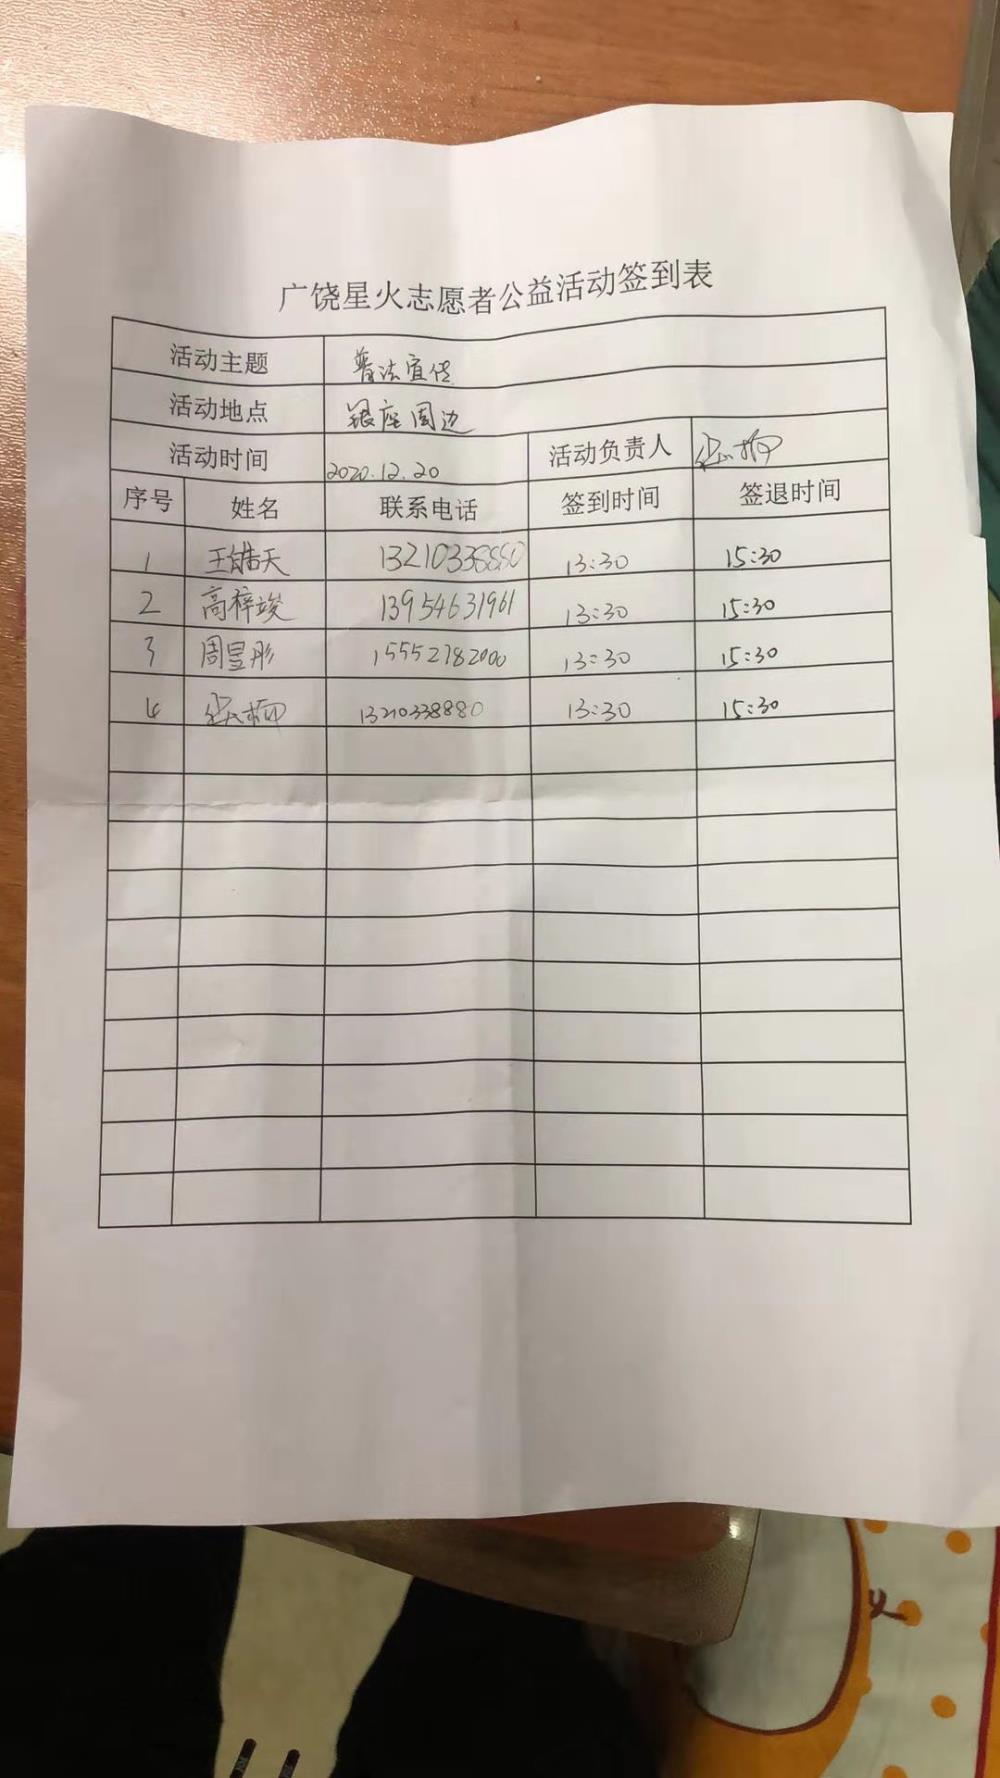 广饶星火志愿者公益活动签到表
活动主题 普法宣传
活动地点 银座周边
活动时间 2020.12.20 活动负责人
序号 姓名 联系电话 签到时间 签退时间
1 王皓天 13210338880 13:30 15:30
2 高梓竣 13954631961 13:30 15:30
3 周昱彤 15552782000 13:30 15:30
4 13210338880 13:30 15:30